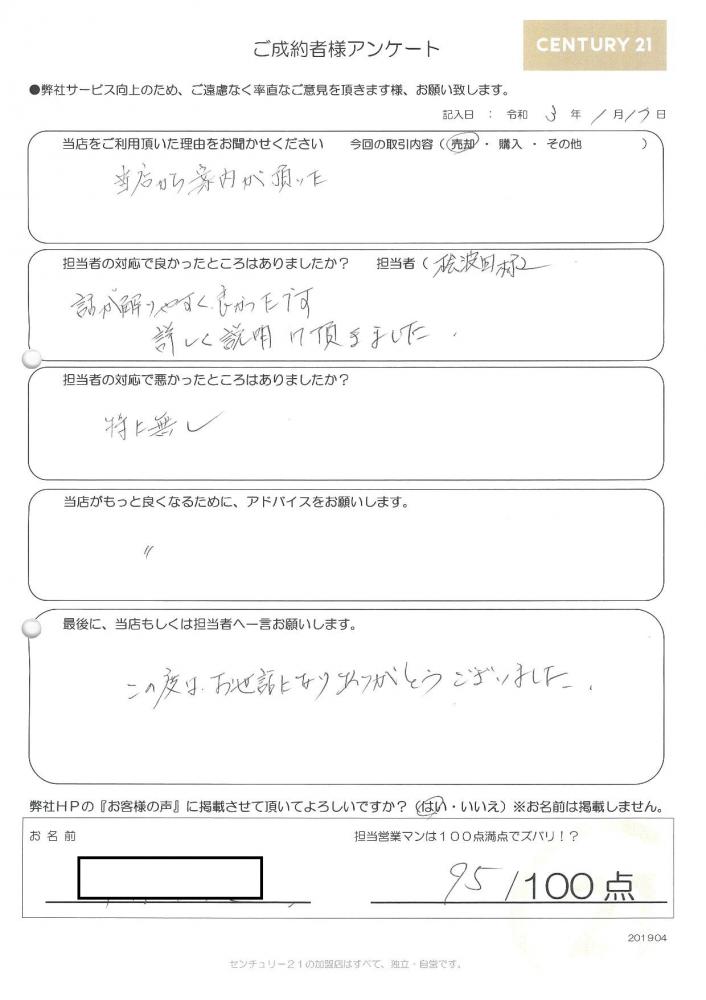 ご成約者様アンケート
CENTURY 21
●弊社サービス向上のため、ご遠慮なく率直なご意見を頂きます様、お願い致します。
記入日 : 令和 3 年 1 月 17 日
当店をご利用頂いた理由をお聞かせください 今回の取引内容(売却・購入・その他 )
当店から案内が頂いた
担当者の対応で良かったところはありましたか? 担当者( 様
話が解りやすく良かったです
詳しく説明 頂きました.
担当者の対応で悪かったところはありましたか?
特に無し
当店がもっと良くなるために、アドバイスをお願いします。
〃
最後に、当店もしくは担当者へ一言お願いします。
この度は、お世話になりありがとうございました.
弊社HPの『お客様の声』に掲載させて頂いてよろしいですか?(はい・いいえ)※お名前は掲載しません。
お名前 担当営業マンは100点満点でズバリ!?
95/100点
201904
センチュリー21の加盟店はすべて、独立・自営です。